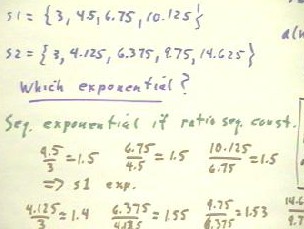 s1 = {3, 4.5, 6.75, 10.125}
s2 = {3, 4.125, 6.375, 9.75, 14.625}
Which exponential?
Seq. exponential if ratio seq. const.
4.5/3 = 1.5 6.75/4.5 = 1.5 10.125/6.75 = 1.5
=> s1 exp.
4.125/3 ≈ 1.4 6.375/4.125 ≈ 1.55 9.75/6.375 ≈ 1.53